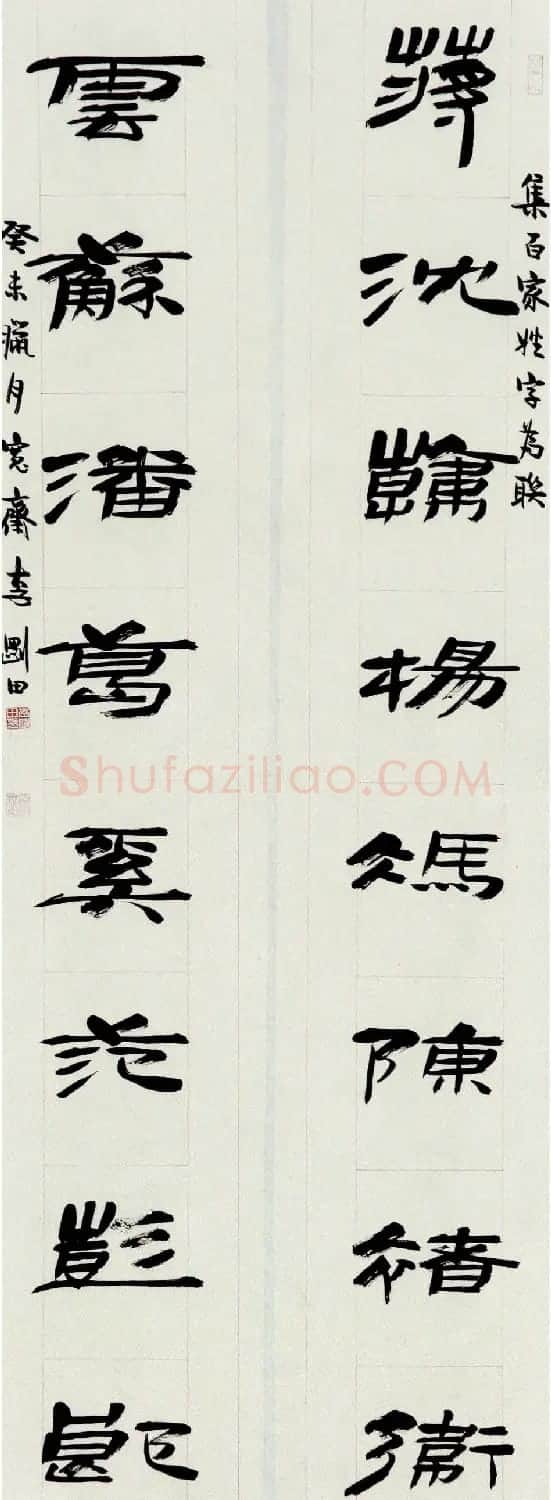 集百家姓字為聯
蔣沈韓楊馮陳褚衛
雲蘇潘葛奚范彭郎
癸未臘月寬齋李剛田
Shufaziliao.COM